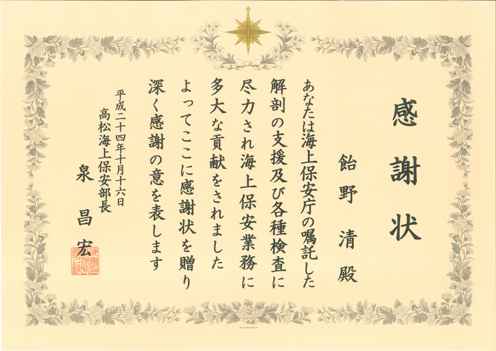 感謝状
飴野清殿
あなたは海上保安庁の嘱託した
解剖の支援及び各種検査に
尽力され海上保安業務に
多大な貢献をされました
よってここに感謝状を贈り
深く感謝の意を表します
平成二十四年十月十六日
高松海上保安部長
泉昌宏